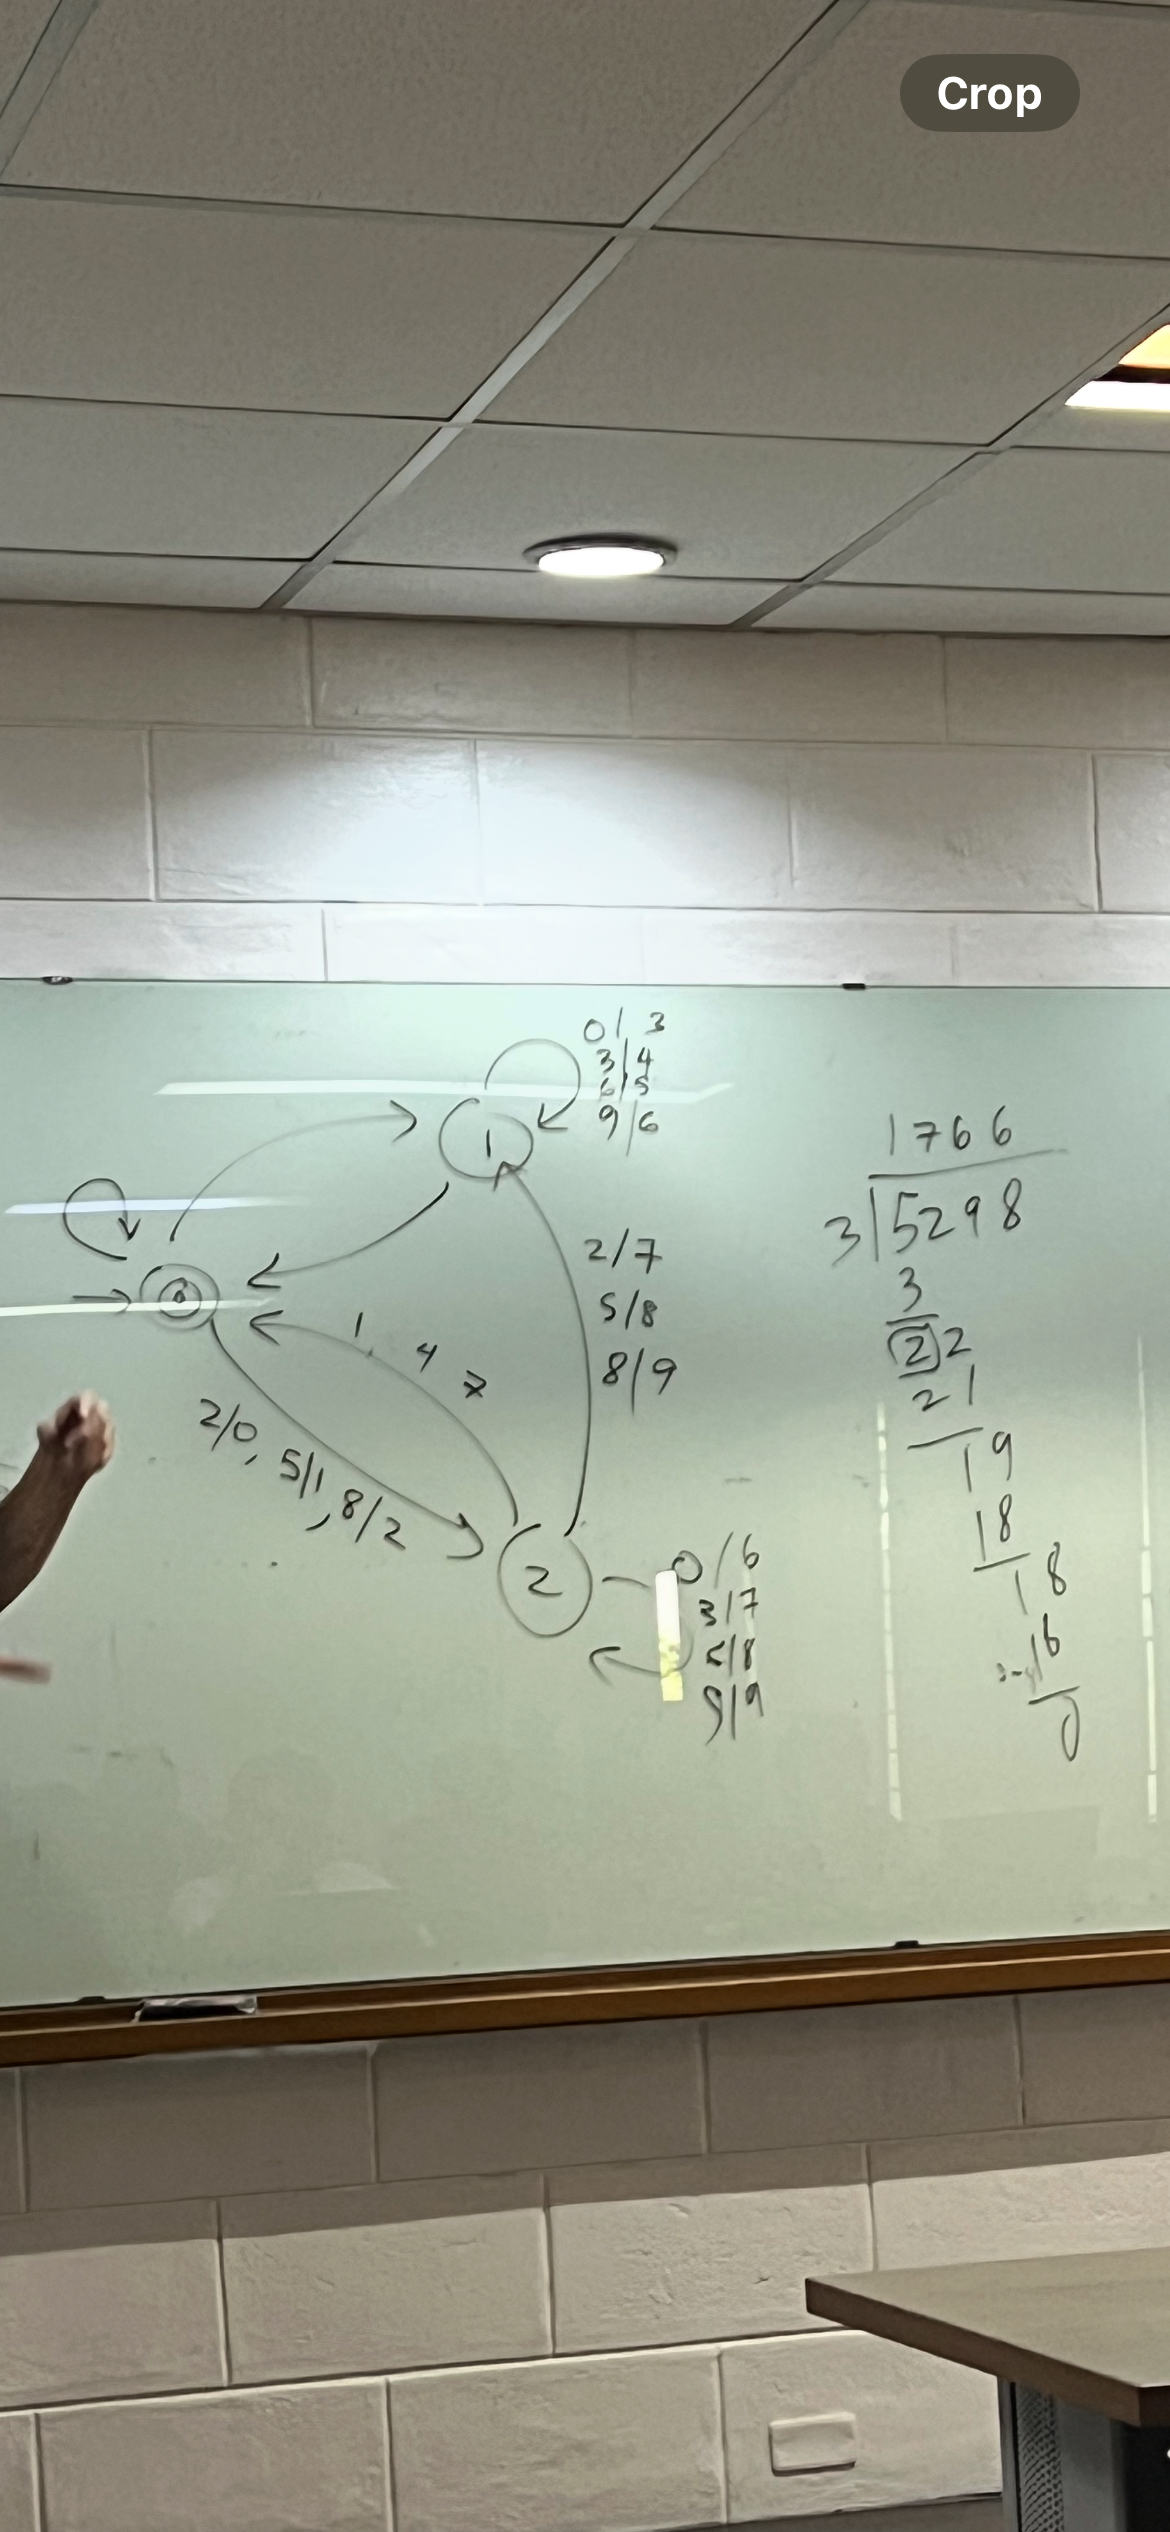 Crop
0/ 3
3/4
6/5
9/6
1
0
2/7
5/8
8/9
1, 4 7
2/0, 5/1, 8/2
2
0/6
3/7
9/9
1766
3)5298
3
22
21
19
18
18
0